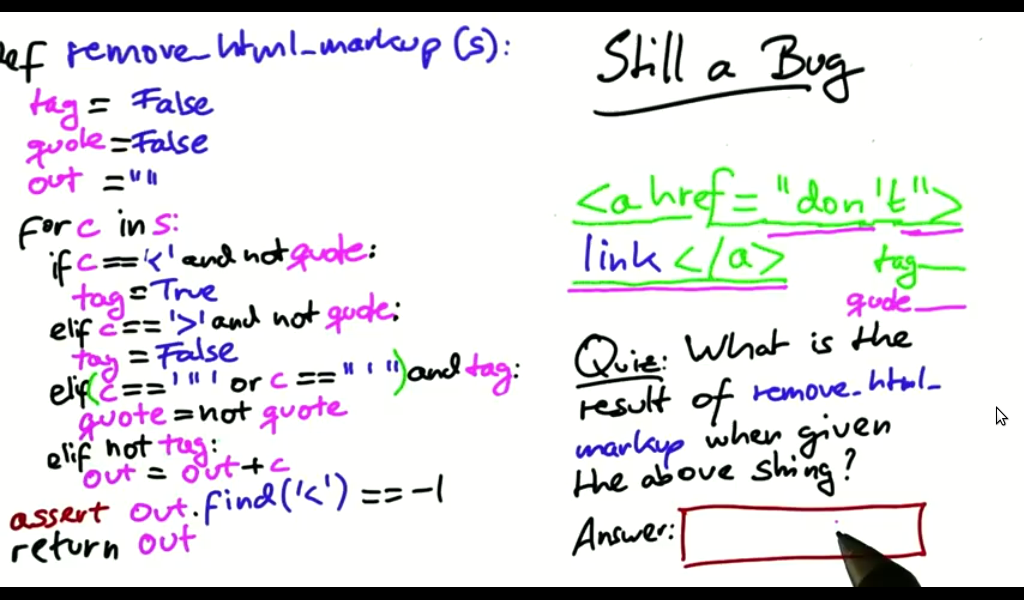 def remove_html_markup (s):
tag = False
quote = False
out = ""
for c in s:
if c == '<' and not quote:
tag = True
elif c == '>' and not quote:
tag = False
elif (c == '"' or c == "'") and tag:
quote = not quote
elif not tag:
out = out + c
assert out.find('<') == -1
return out
Still a Bug
<a href = "don't">
link </a>
tag
quote
Quiz: What is the
result of remove_html_
markup when given
the above string?
Answer: